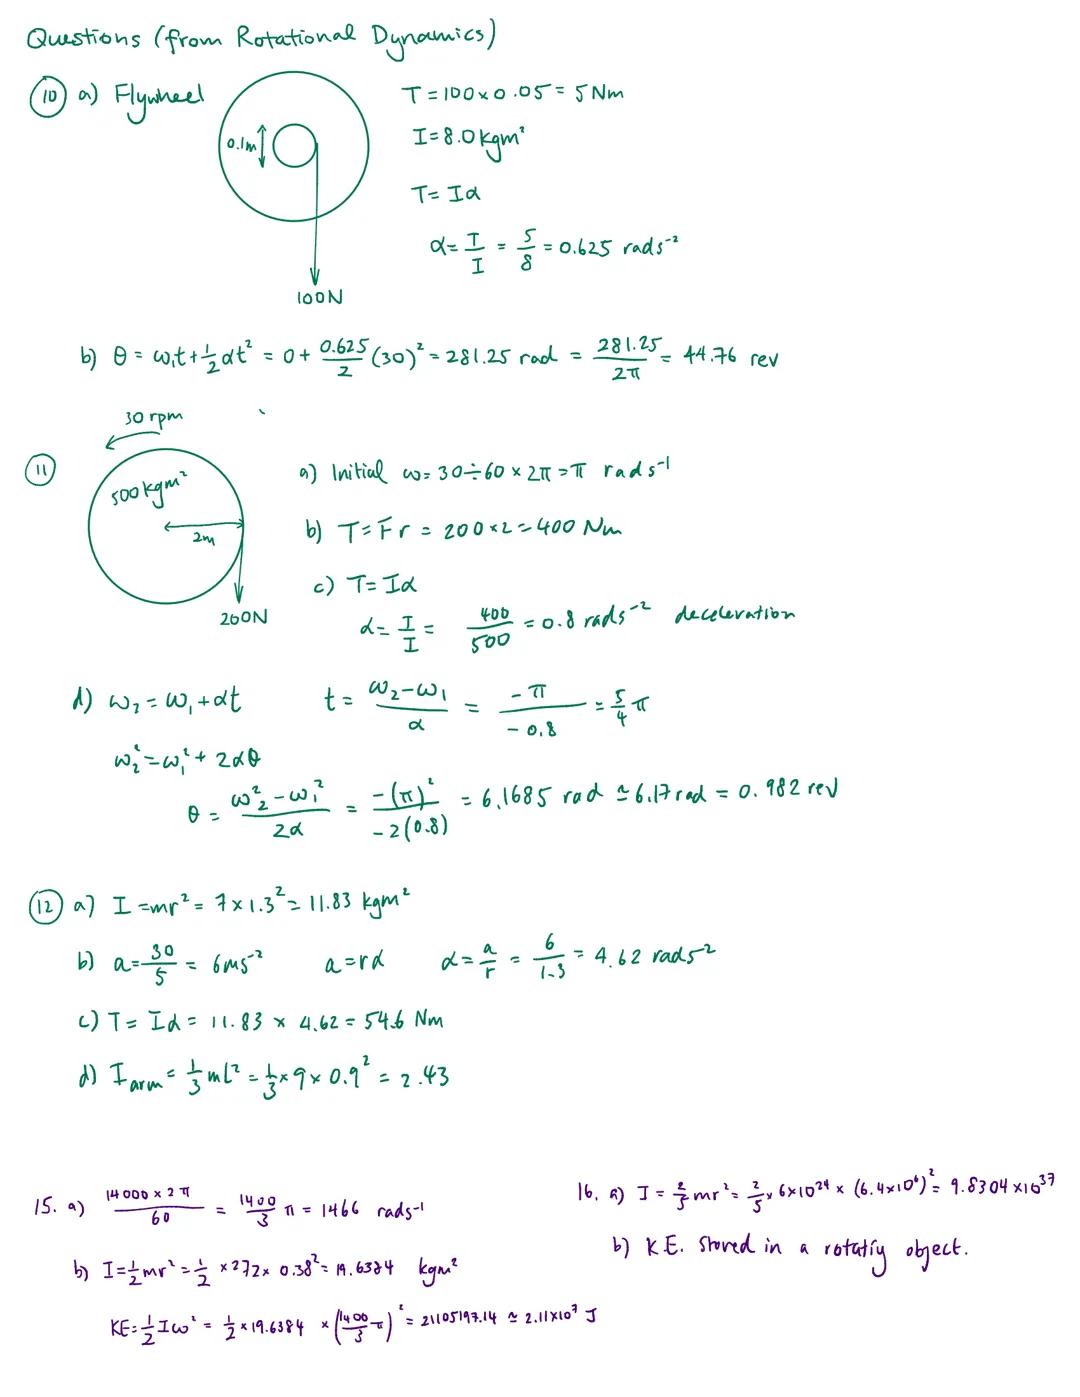 Questions (from Rotational Dynamics)
10 a) Flywheel
0.1m
100N
T = 100 x 0.05 = 5 Nm
I = 8.0 kgm²
T = Iα
α = T/I = 5/8 = 0.625 rads⁻²
b) θ = ω₁t + ½αt² = 0 + 0.625/2 (30)² = 281.25 rad = 281.25/2π = 44.76 rev
11
30 rpm
500 kgm²
2m
200N
a) Initial ω = 30 ÷ 60 × 2π = π rads⁻¹
b) T = Fr = 200 × 2 = 400 Nm
c) T = Iα
α = T/I = 400/500 = 0.8 rads⁻² deceleration
d) ω₂ = ω₁ + αt t = (ω₂ - ω₁)/α = -π/-0.8 = 5/4 π
ω₂² = ω₁² + 2αθ
θ = (ω₂² - ω₁²)/2α = -(π)²/-2(0.8) = 6.1685 rad ≃ 6.17 rad = 0.982 rev
12 a) I = mr² = 7 × 1.3² = 11.83 kgm²
b) a = 30/5 = 6ms⁻² a = rα α = a/r = 6/1.3 = 4.62 rads⁻²
c) T = Iα = 11.83 × 4.62 = 54.6 Nm
d) I arm = ⅓ mL² = ⅓ × 9 × 0.9² = 2.43
15. a) 14000 × 2π/60 = 1400/3 π = 1466 rads⁻¹
b) I = ½mr² = ½ × 272 × 0.38² = 19.6384 kgm²
KE = ½Iω² = ½ × 19.6384 × (1400/3 π)² = 21105197.14 ≃ 2.11×10⁷ J
16. a) I = ⅖mr² = ⅖ × 6×10²⁴ × (6.4×10⁶)² = 9.8304 ×10³⁷
b) K.E. stored in a rotating object.